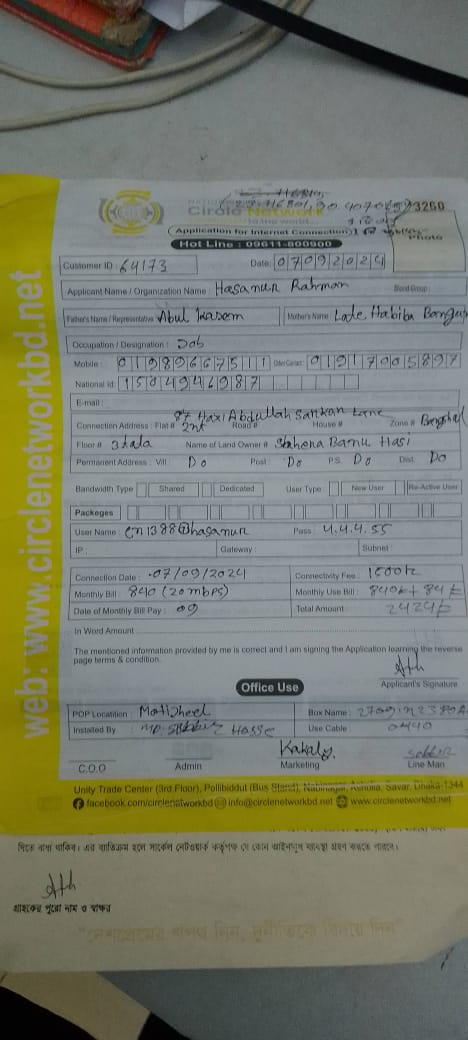 23260
Circle Network
Application for Internet Connection
Photo
Hot Line : 09611-800900
Customer ID : 64173 Date: 07092024
Applicant Name / Organization Name : Hasanur Rahman Blood Group :
Father's Name / Representative : Abul Kasem Mother's Name Late. Habiba
Occupation / Designation : Job
Mobile : 01989667511 Other Contact : 01917005897
National Id: 1504946987
E-mail :
Connection Address : Flat # 2nd Road # House # Zone #
87 Haxi Abdullah Sarkar Lane
Floor # 3 tala Name of Land Owner # Shahena Banu Hasi
Permanent Address : Vill : Do Post : Do P.S. Do Dist. Do
Bandwidth Type Shared Dedicated User Type New User Re-Active User
Packeges
User Name : Pass : 4.4.4.55
IP : Gateway : Subnet :
Connection Date : 07/09/2024 Connectivity Fee :
Monthly Bill : 840 (20 mbps) Monthly Use Bill :
Date of Monthly Bill Pay : 09 Total Amount : 2424/=
In Word Amount
The mentioned information provided by me is correct and I am signing the Application learning the reverse
page terms & condition.
Applicant's Signature
Office Use
POP Locatition : Motijheel Box Name :
Installed By : Use Cable 0440
C.O.O Admin Marketing Line Man
Unity Trade Center (3rd Floor), Pollibiddut (Bus Stand), Nabinagar, Ashulia, Savar, Dhaka-1344
facebook.com/circlenetworkbd info@circlenetworkbd.net www.circlenetworkbd.net
web: www.circlenetworkbd.net
দিতে বাধ্য থাকিব। এর ব্যতিক্রম হলে সার্কেল নেটওয়ার্ক কর্তৃপক্ষ যে কোন আইনানুগ ব্যবস্থা গ্রহণ করতে পারবে।
গ্রাহকের পুরো নাম ও স্বাক্ষর
"দেশপ্রেমের শপথ নিন, দুর্নীতিকে বিদায় দিন"